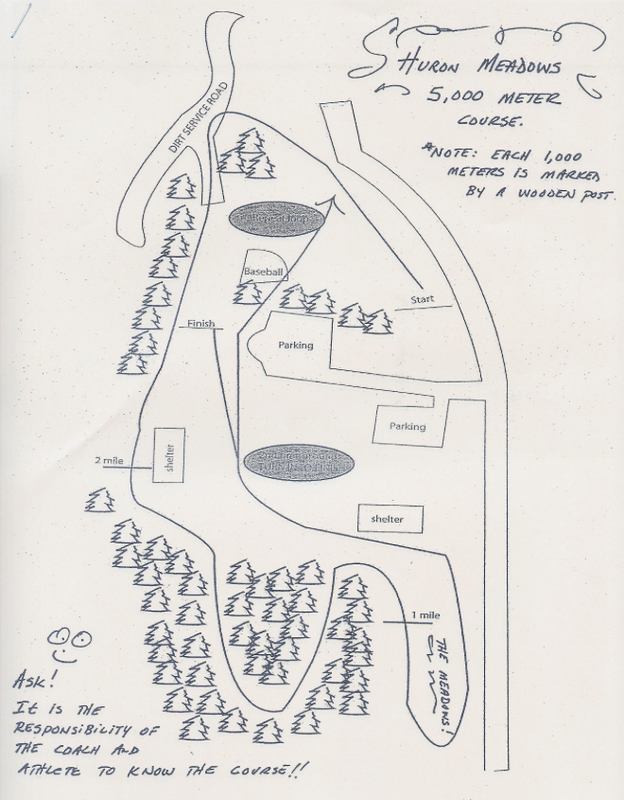 HURON MEADOWS
5,000 METER
COURSE.
*NOTE: EACH 1,000
METERS IS MARKED
BY A WOODEN POST.
DIRT SERVICE ROAD
Repeat loop
Baseball
Start
Finish
Parking
Parking
2 mile
shelter
shelter
1 mile
THE MEADOWS!
ASK!
IT IS THE
RESPONSIBILITY OF
THE COACH AND
ATHLETE TO KNOW THE COURSE!!